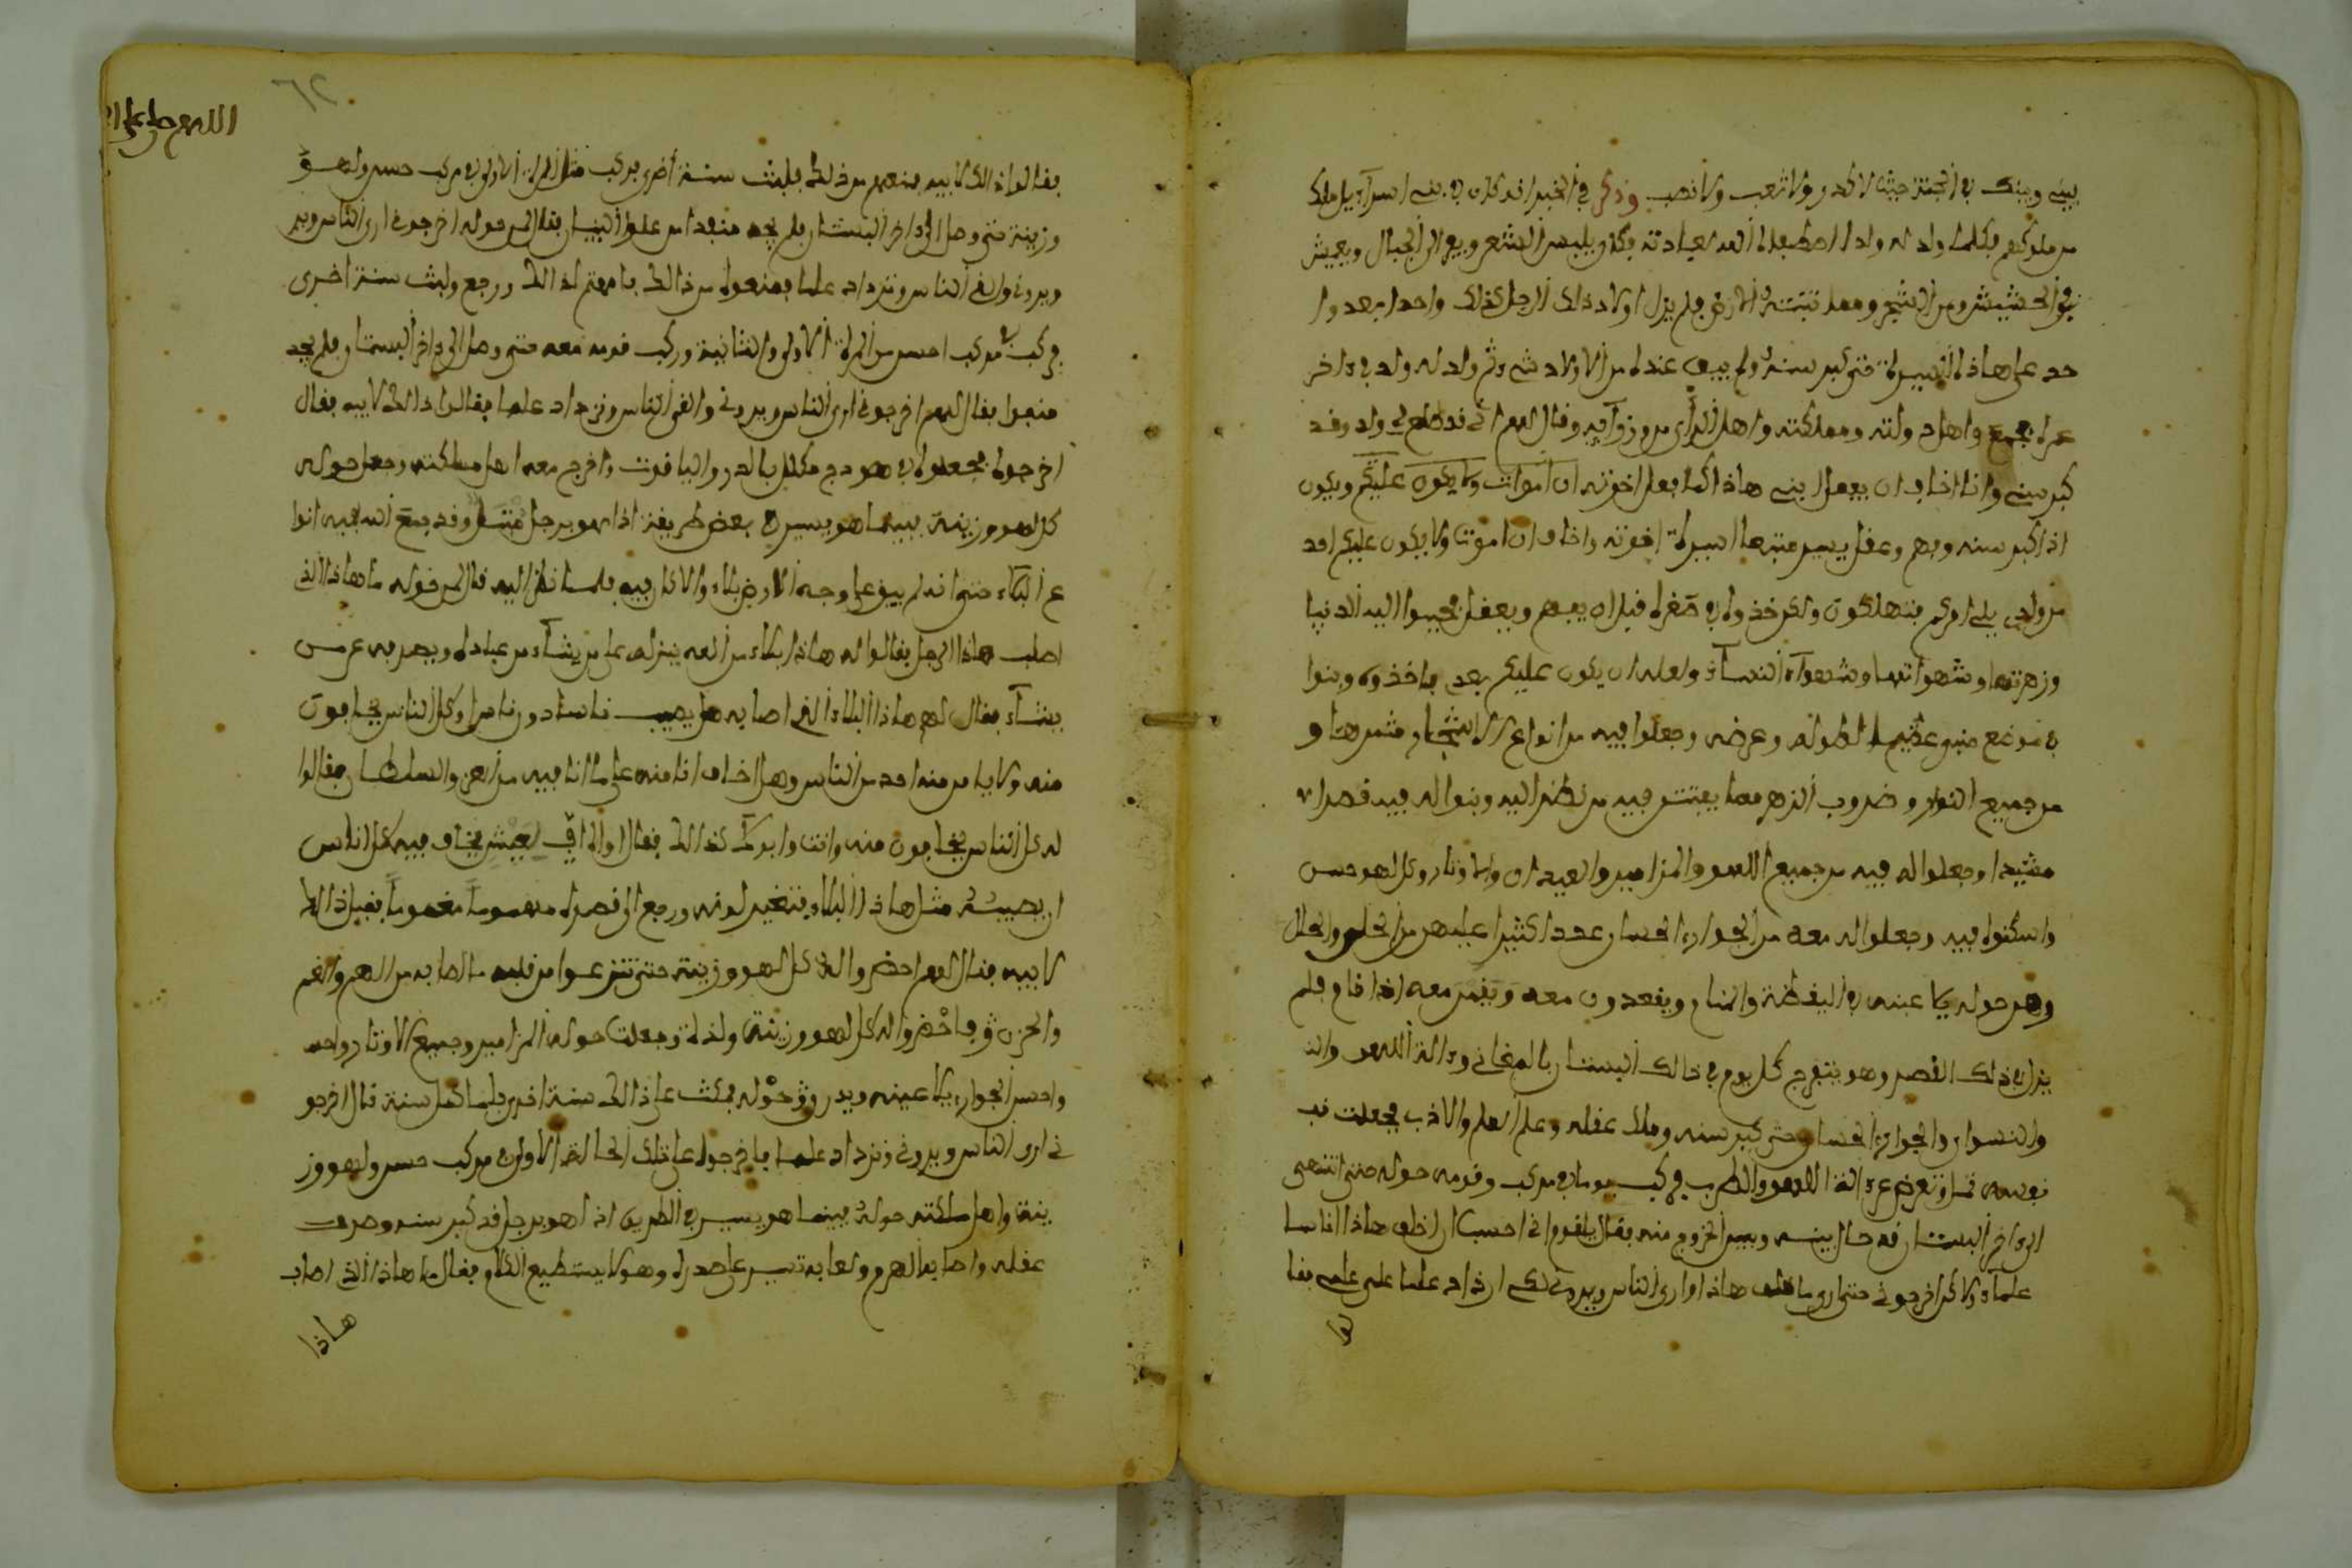 بيني وبينك في الجنة حيث لا كدر ولا تعب ولا نصب وذكر في الخبر انه كان في بني اسراءيل ملك
من ملوكهم فكلما ولد له ولدا اصطفاه الله لعبادته فكان يلبس الشعر ويعر الى الجبال ويعيش
في الحشيش ومن الشجر ومما تنبته الارض فلم يزل اولاد ذلك الرجل كذلك واحدا بعد وا
حد على هاذه السيرة حتى كبر سنه ولم يبق عنده من الاولاد شيء ثم ولد له ولد في ءاخر
عمره فجمع اهل دولته ومملكته واهل الرأي من وزرآيه وقال لهم اني قد طلع لي ولد وقد
كبر سني وانا اخاف ان يفعل ابني هاذا كما فعل اخوته ان اموات ولا يكون عليكم ويكون
اذا كبر سنه وفهم وعقل يسير مثلها السيرة اخوته واخاف ان اموت ولا يكون عليكم احد
من ولدي يلي امركم فتهلكون ولكن خذوه في صغره قبل ان يفهم ويعقل فحببوا اليه الدنيا
وزهرتها وشهواتها وشهوآة النسآء ولعله ان يكون عليكم بعدي فاخذوه وبنوا
في موضع منبو عظيم لطوله وعرضه وجعلوا فيه من انواع الاشجار وثمرها و
من جميع النوار وضروب الزهر مما يفتتن فيه من نظر اليه وبنوا له فيه قصرا
مشيدا وجعلوا له فيه من جميع اللهو والمزامير والعيدان والاوتار وكل لهو حسن
واسكنوه فيه وجعلوا له معه من الجوار الحسان عددا كثيرا عليهم من الحلي والحلل
وهم حوله يلاعبنه في اليقظة والمنام ويقعدون معه ويقمن معه اذا قام فلم
يزل في ذلك القصر وهو يتفرج كل يوم في ذالك البستان بالمغاني وءالة اللهو والذ
والنسوان والجوار الحسان حتى كبر سنه وملك عقله وعلم العلم والادب فجعلت نفـ
نفسه تمل وتعرض عن الة اللهو والطرب فركب يوما في مركب وقومه حوله حتى انتهى
الى ءاخر البستان قد حال بينه وبين الخروج منه فقال يا قوم اني احسب ان خلف هاذا اناسا
علماء ولكن اخرجوني حتى ارى ما خلف هاذا وارى الناس ويروني لكي ازداد علما على علمي فقا
لوا
الهم صل على
٦٢
فقالوا ذالك لابيه فمنعهم من ذلك فلبث سنة اخرى فركب مثل المرة الاولى في مركب حسن ولهو
وزينة حتى وصل الى ءاخر البستان فلم يجد منفدا من علو البنيان فقال لمن حوله اخرجوني ارى الناس وير
ويروني والقى الناس ونزداد علما فمنعوه من ذالك فاهتم لذالك ورجع ولبث سنة اخرى
فركب في مركب احسن من المرة الاولى والثانية وركب قومه معه حتى وصل الى ءاخر البستان فلم يجد
منعوا فقال لهم اخرجوني ارى الناس ويروني والقى الناس ونزداد علما فقالوا ذالك لابيه فقال
اخرجوه فجعلوه في هودج مكلل بالدر والياقوت واخرج معه اهل مملكته وجعل حوله
كل لهو وزينة فبينما هو يسير في بعض طريقه اذا هو برجل مبتلى وقد جمع الله فيه انوا
ع البلاء حتى انه لم يبق على وجه الارض بلاء والا كان فيه فلما نظر اليه قال لمن حوله ما هاذا الذي
اصاب هاذا الرجل فقالوا له هاذا بلاء من الله ينزله على من يشآء من عباده ويصرفه عن من
يشآء فقال لهم هاذا البلاء الذي اصابه هل يصيب ناسا دون ناس او كل الناس يخافون
منه ولا يامن منه احد من الناس وهل اخاف انا منه على ما انا فيه من العز والسلطان فقالوا
له كل الناس يخافون منه وانت وابوك كذالك فقال اواه افي لعيش يخاف فيه كل الناس
ان يصيبه مثل هاذا البلاء فتغير لونه ورجع الى قصره مهموما مغموما فقيل ذالك
لابيه فقال لهم احضروا له كل لهو وزينة حتى تنزعوا من قلبه ما اصابه من الهم والغم
والحزن فاحضروا له كل لهو وزينة ولذة وجعلت حوله المزامير وجميع الاوتار واحـ
واحسن الجوار يلاعبنه ويدرون حوله فمكث على ذالك سنة اخرى فلما كمل سنة قال اخرجو
ني ارى الناس ويروني ونزداد علما فاخرجوه على تلك الحالة الاولى في مركب حسن ولهو وز
ينة واهل مملكته حوله فبينما هو يسير في الطريق اذا هو برجل قد كبر سنه وخرف
عقله واصابه الهرم ولعابه تسير على صدره وهو لا يستطيع الكلام فقال ما هاذا الذي اصاب
هاذا